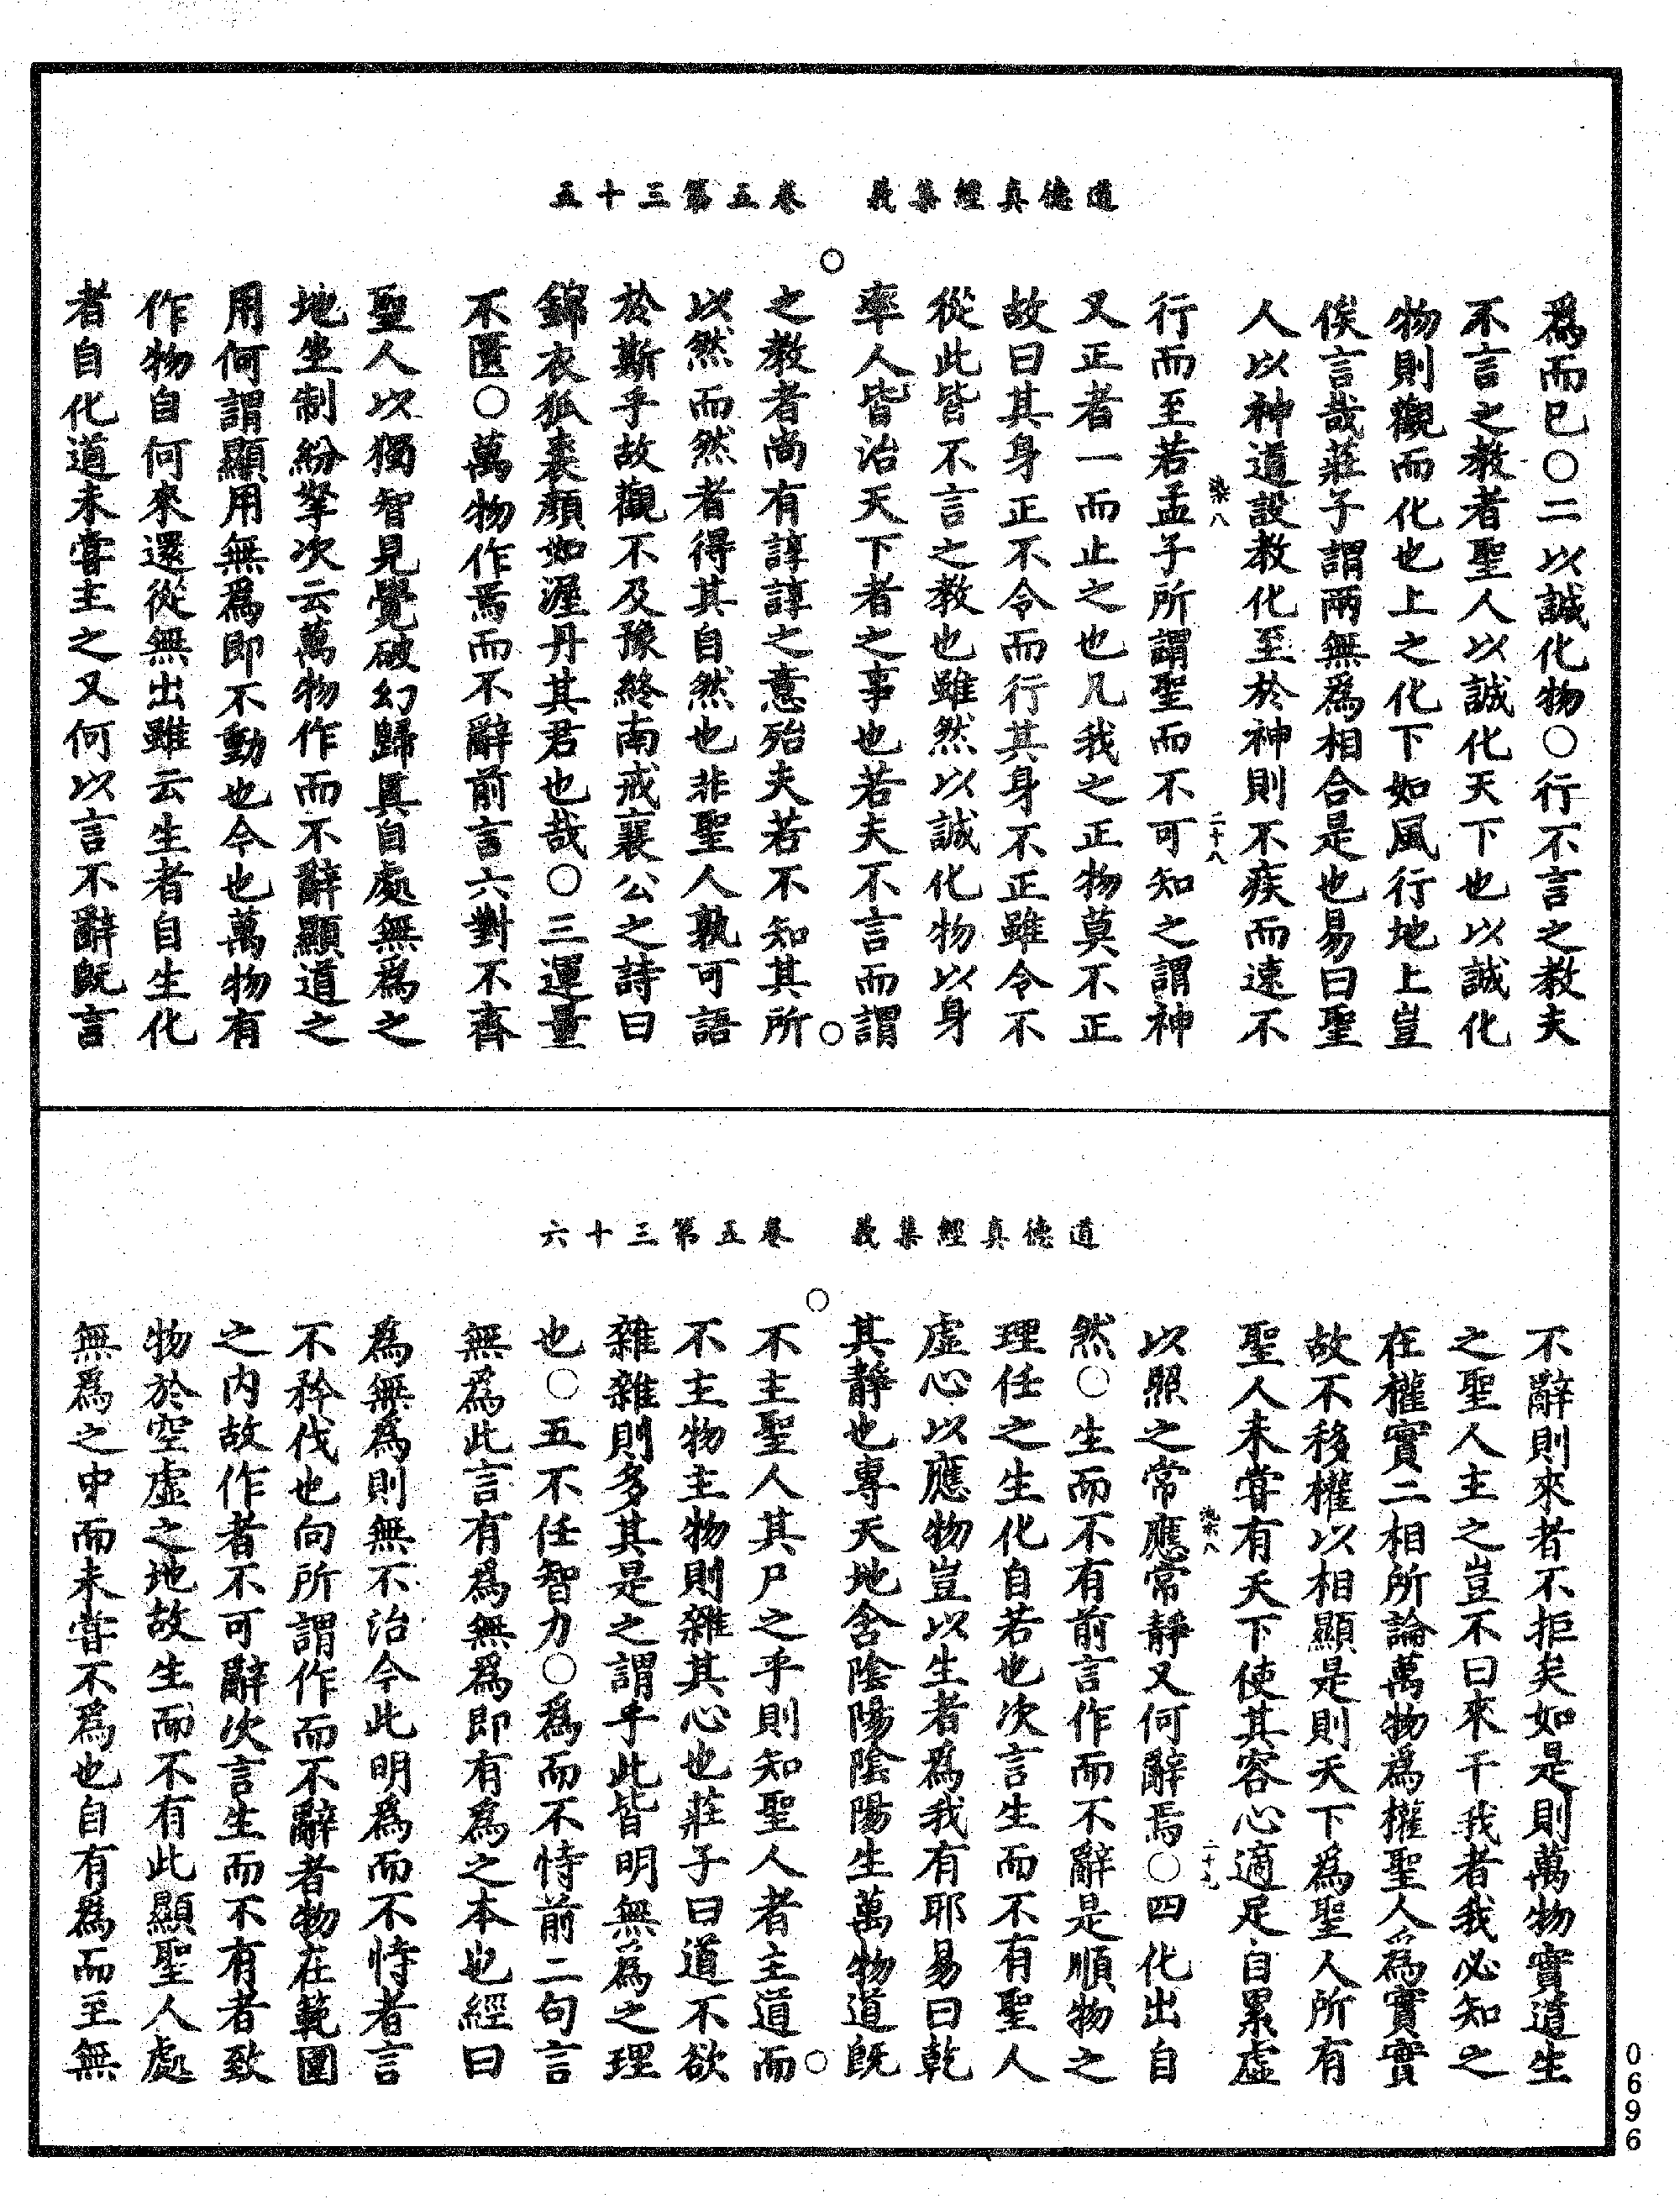 道德真經集義　卷五第三十五
爲而已〇二以誠化物〇行不言之教夫
不言之教者聖人以誠化天下也以誠化
物則觀而化也上之化下如風行地上豈
俟言哉莊子謂兩無爲相合是也易曰聖
人以神道設教化至於神則不疾而速不
染八　二十八
行而至若孟子所謂聖而不可知之謂神
又正者一而止之也凡我之正物莫不正
故曰其身正不令而行其身不正雖令不
從此皆不言之教也雖然以誠化物以身
率人皆治天下者之事也若夫不言而謂
之教者尚有諄諄之意殆夫若不知其所
以然而然者得其自然也非聖人孰可語
於斯乎故觀不及豫終南戒襄公之詩曰
錦衣狐裘顏如渥丹其君也哉〇三運量
不匱〇萬物作焉而不辭前言六對不齊
聖人以獨智見覺破幻歸真自處無爲之
地坐制紛拏次云萬物作而不辭顯道之
用何謂顯用無爲即不動也今也萬物有
作物自何來還從無出雖云生者自生化
者自化道未嘗主之又何以言不辭既言
道德真經集義　卷五第三十六
不辭則來者不拒矣如是則萬物實道生
之聖人主之豈不曰來干我者我必知之
在權實二相所論萬物為權聖人為實實
故不移權以相顯是則天下為聖人所有
聖人未嘗有天下使其容心適足自累虛
染八　二十九
以照之常應常靜又何辭焉〇四化出自
然〇生而不有前言作而不辭是順物之
理任之生化自若也次言生而不有聖人
虛心以應物豈以生者為我有耶易曰乾
其靜也專天地含陰陽陰陽生萬物道既
不主聖人其尸之乎則知聖人者主道而
不主物主物則雜其心也莊子曰道不欲
雜雜則多其是之謂乎此皆明無為之理
也〇五不任智力〇為而不恃前二句言
無為此言有為無為即有為之本也經曰
為無為則無不治今此明為而不恃者言
不矜伐也向所謂作而不辭者物在範圍
之内故作者不可辭次言生而不有者致
物於空虛之地故生而不有此顯聖人處
無為之中而未嘗不為也自有為而至無
0696